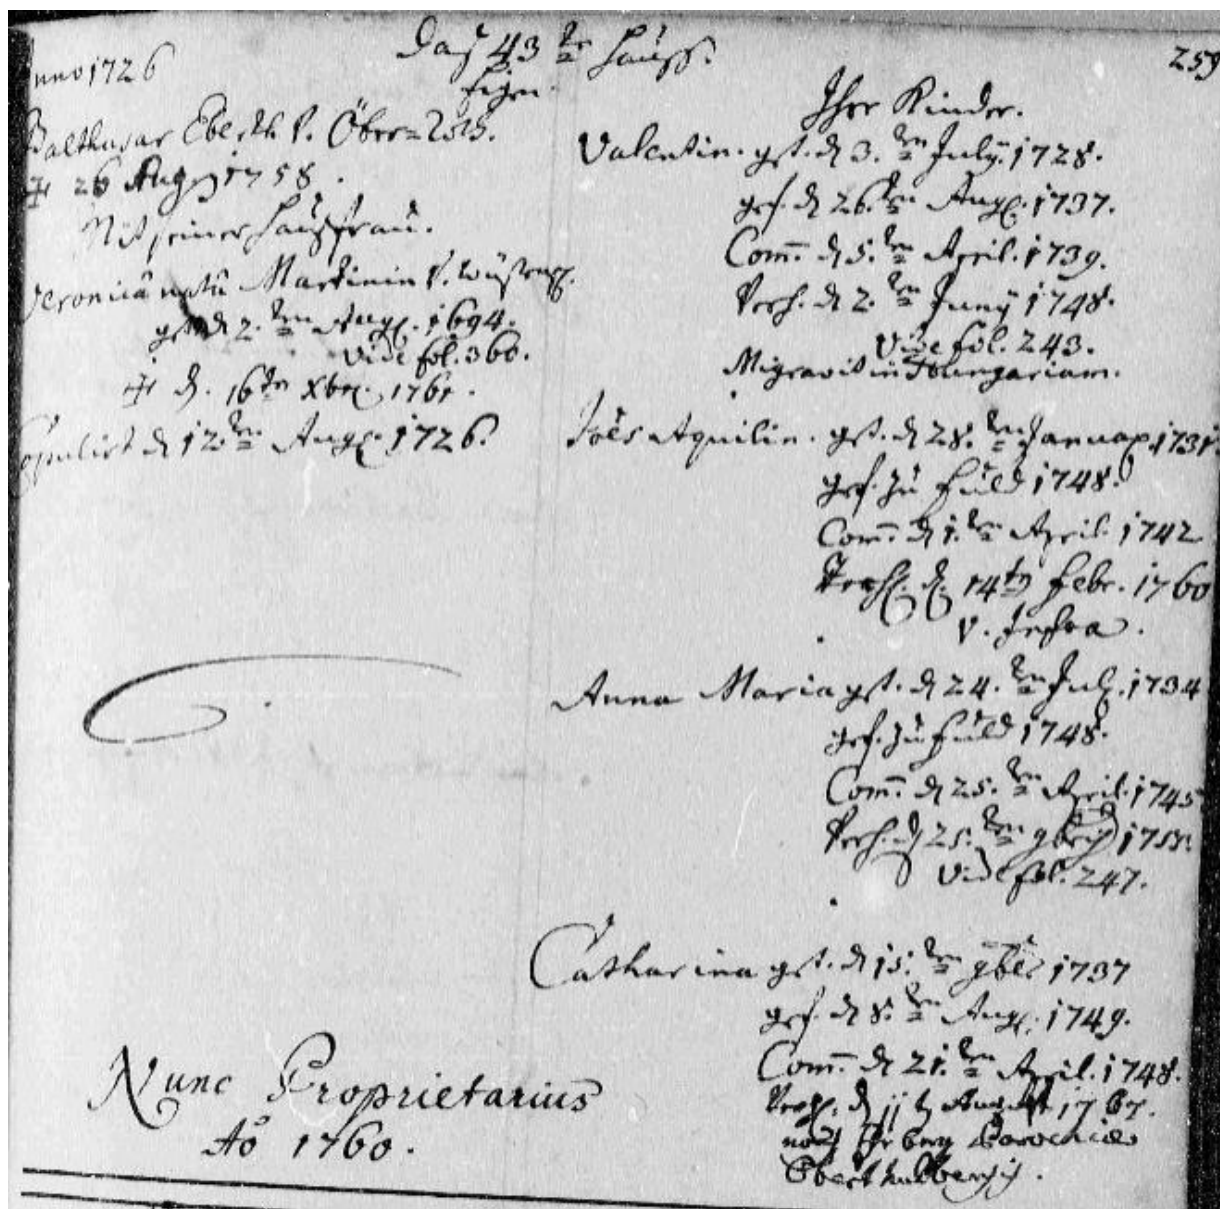 Das 43 te Hauß. 259
Anno 1726
Eigen.
Balthasar Eberth v.
† 26 Aug 1758.
Mit seiner Haußfrau.
Veronica nata Martinin v.
gst. d 2. ten Aug. 1694.
vide fol. 360.
† d. 16tn Xbr. 1761.
Copulirt d 12. ten Aug. 1726.
Ihre Kinder.
Valentin. gst. d 3. ten July. 1728.
gef. d 26. ten Aug. 1737.
Com̄. d 5. ten April. 1739.
Verh. d 2. ten Juny 1748.
vide fol. 243.
Migravit in Hungariam.
Jo͠es Aquilin. gst. d 28. ten Januar. 1731.
gef. zu Fuld 1748.
Com̄. d 1. ten April. 1742
Verh. d. 14tn Febr. 1760
v. Infra.
Anna Maria gst. d 24. ten Jul. 1734
gef. zu Fuld 1748.
Com̄. d 25. ten April. 1745
Verh. d 25. ten 9bris
vide fol. 247.
Catharina gst. d 15. ten 9br 1737
gef. d 8. ten Aug. 1749.
Com̄. d 21. ten April. 1748.
Verh. d 11 t August 1767.
nach Parochiae
Nunc Proprietarius
Ao 1760.